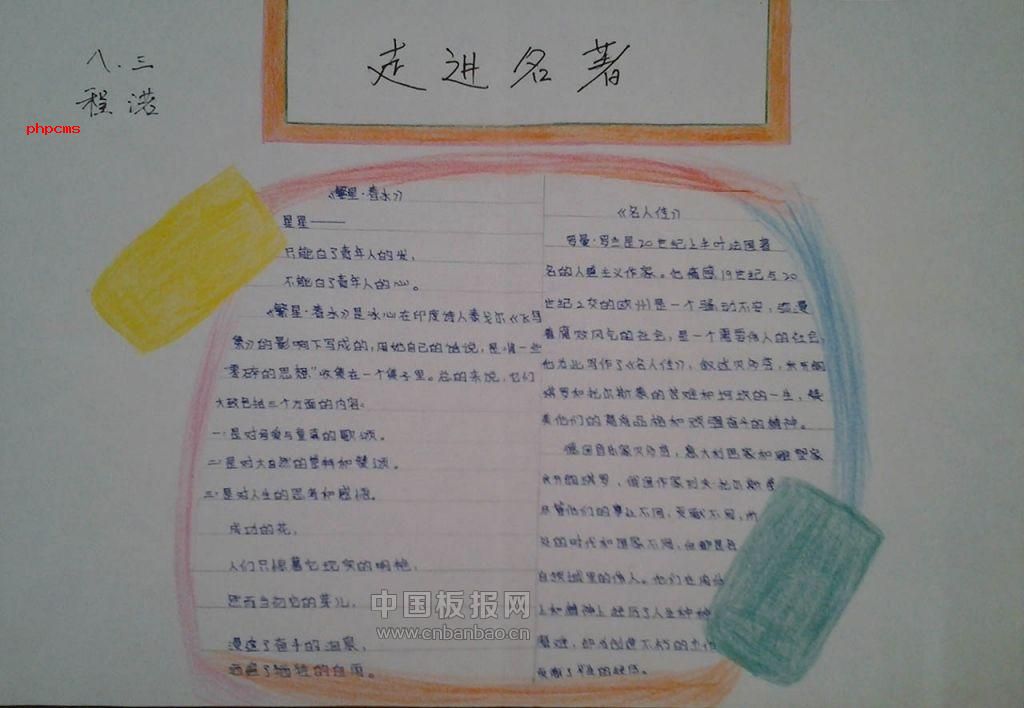 走进名著
八.三
程诺
phpcms
《繁星·春水》
星星——
只能白了青年人的发,
不能白了青年人的心。
《繁星·春水》是冰心在印度诗人泰戈尔《飞鸟
集》的影响下写成的,用她自己的话说,是将一些
"零碎的思想"收集在一个集子里。总的来说,它们
大致包括三个方面的内容:
一.是对母爱与童真的歌颂。
二.是对大自然的崇拜和赞颂。
三.是对人生的思考和感悟。
成功的花,
人们只惊慕她现实的明艳,
然而当初它的芽儿,
浸透了奋斗的泪泉,
洒遍了牺牲的血雨。
《名人传》
罗曼·罗兰是20世纪上半叶法国著
名的人道主义作家。他痛感19世纪与20
世纪之交的欧洲是一个骚动不安,弥漫
着腐败风气的社会,是一个需要伟人的社会,
他为此写作了《名人传》,叙述贝多芬,米开朗
琪罗和托尔斯泰的苦难和坎坷的一生,赞
美他们的高尚品格和顽强奋斗的精神。
德国音乐家贝多芬,意大利画家和雕塑家
米开朗琪罗,俄国作家列夫·托尔斯泰
尽管他们的事业不同,贡献不同,所
处的时代和国家不同,但都是各
自领域里的伟人。他们在肉体
上和精神上经历了人生种种
磨难,却为创造不朽的杰作
贡献了毕生的精力。
中国板报网
www.cnbanbao.cn